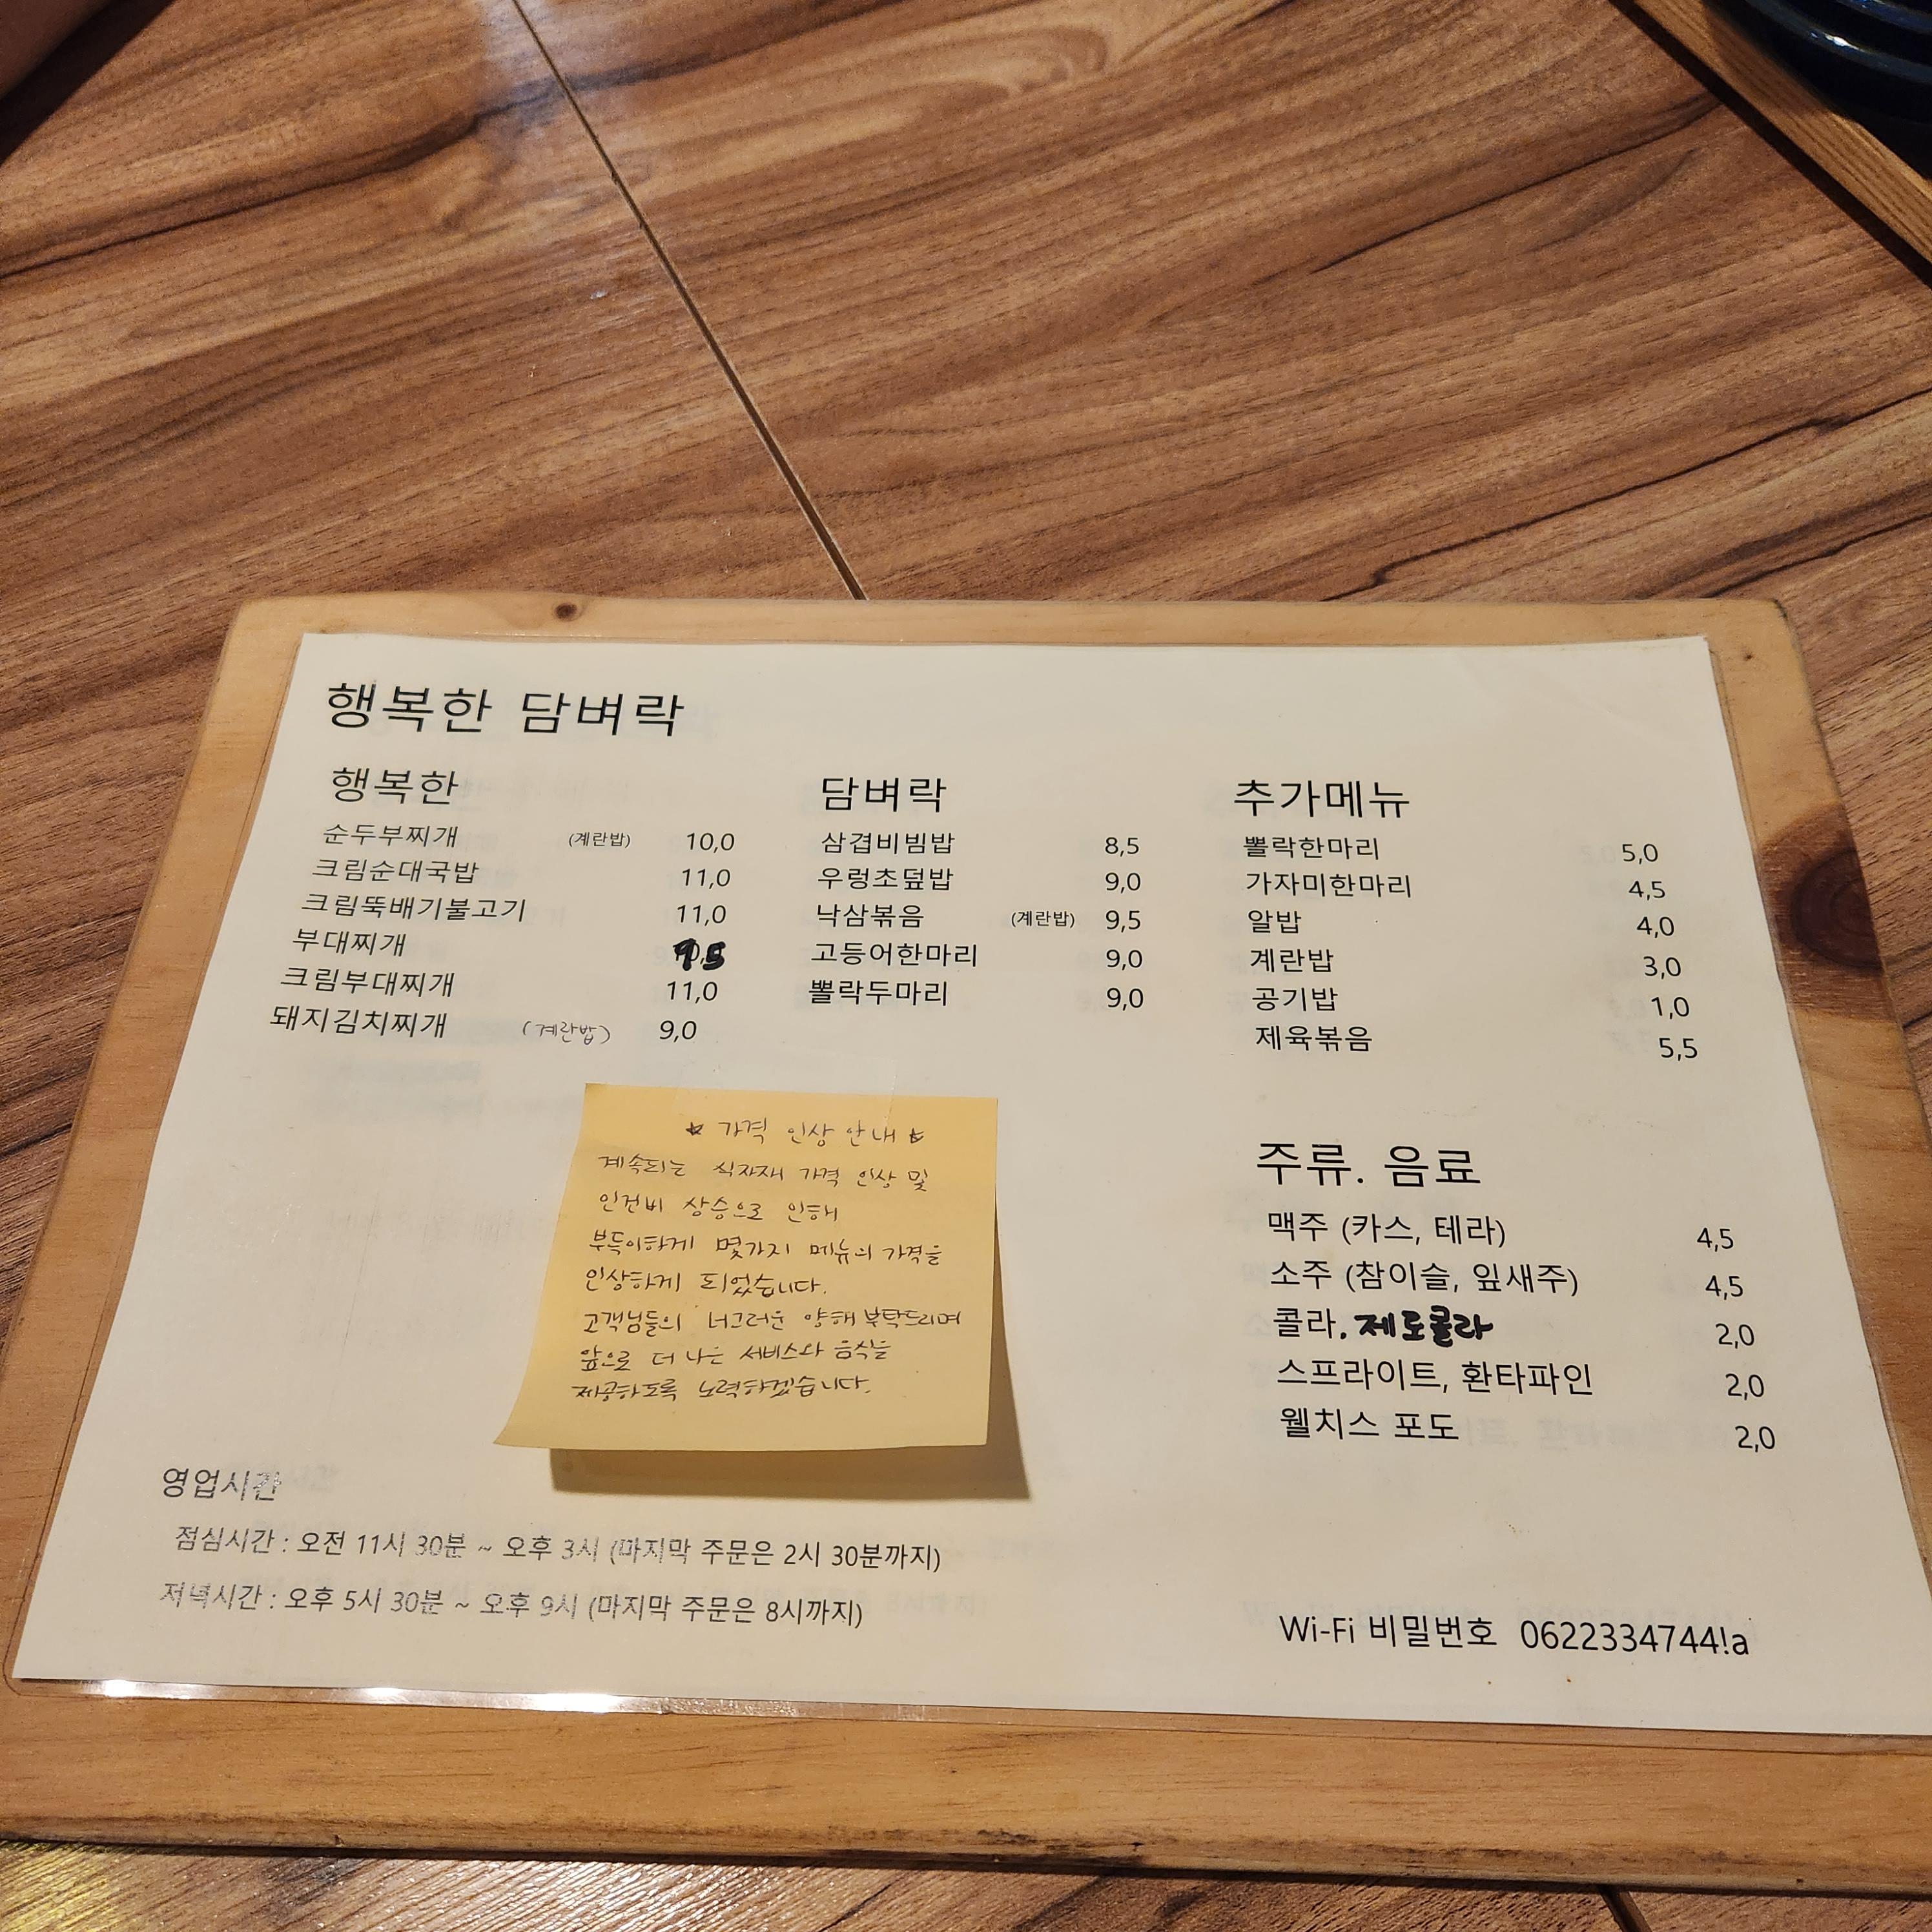 행복한 담벼락
행복한
순두부찌개 (계란밥) 10,0
크림순대국밥 11,0
크림뚝배기불고기 11,0
부대찌개 9,5
크림부대찌개 11,0
돼지김치찌개 (계란밥) 9,0
담벼락
삼겹비빔밥 8,5
우렁초덮밥 9,0
낙삼볶음 (계란밥) 9,5
고등어한마리 9,0
뽈락두마리 9,0
추가메뉴
뽈락한마리 5,0
가자미한마리 4,5
알밥 4,0
계란밥 3,0
공기밥 1,0
제육볶음 5,5
☆ 가격 인상 안내 ☆
계속되는 식자재 가격 인상 및
인건비 상승으로 인해
부득이하게 몇가지 메뉴의 가격을
인상하게 되었습니다.
고객님들의 너그러운 양해 부탁드리며
앞으로 더 나은 서비스와 음식을
제공하도록 노력하겠습니다.
주류. 음료
맥주 (카스, 테라) 4,5
소주 (참이슬, 잎새주) 4,5
콜라, 제로콜라 2,0
스프라이트, 환타파인 2,0
웰치스 포도 2,0
영업시간
점심시간 : 오전 11시 30분 ~ 오후 3시 (마지막 주문은 2시 30분까지)
저녁시간 : 오후 5시 30분 ~ 오후 9시 (마지막 주문은 8시까지)
Wi-Fi 비밀번호 0622334744!a